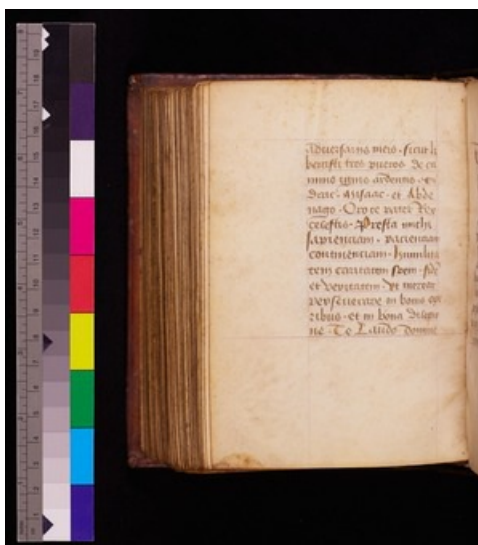 adversariis meis · sicut li
berasti tres pueros de ca
mino ignis ardentis ·
drac · misaac · et Abde
nago · Oro te pater Rex
celestis · Presta michi
sapienciam · pacienciam
continenciam · humilita
tem caritatem spem · fidem
et veritatem · vt merear
perseverare in bonis ope
ribus · et in bona
ne · Te Laudo domine